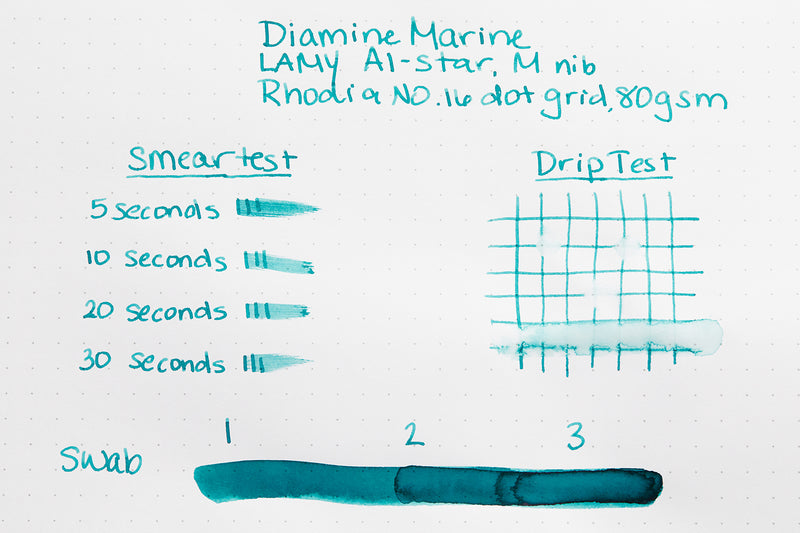 Diamine Marine
LAMY Al-Star, M nib
Rhodia NO.16 dot grid, 80gsm
Smear test
Drip Test
5 seconds
10 seconds
20 seconds
30 seconds
1 2 3
Swab